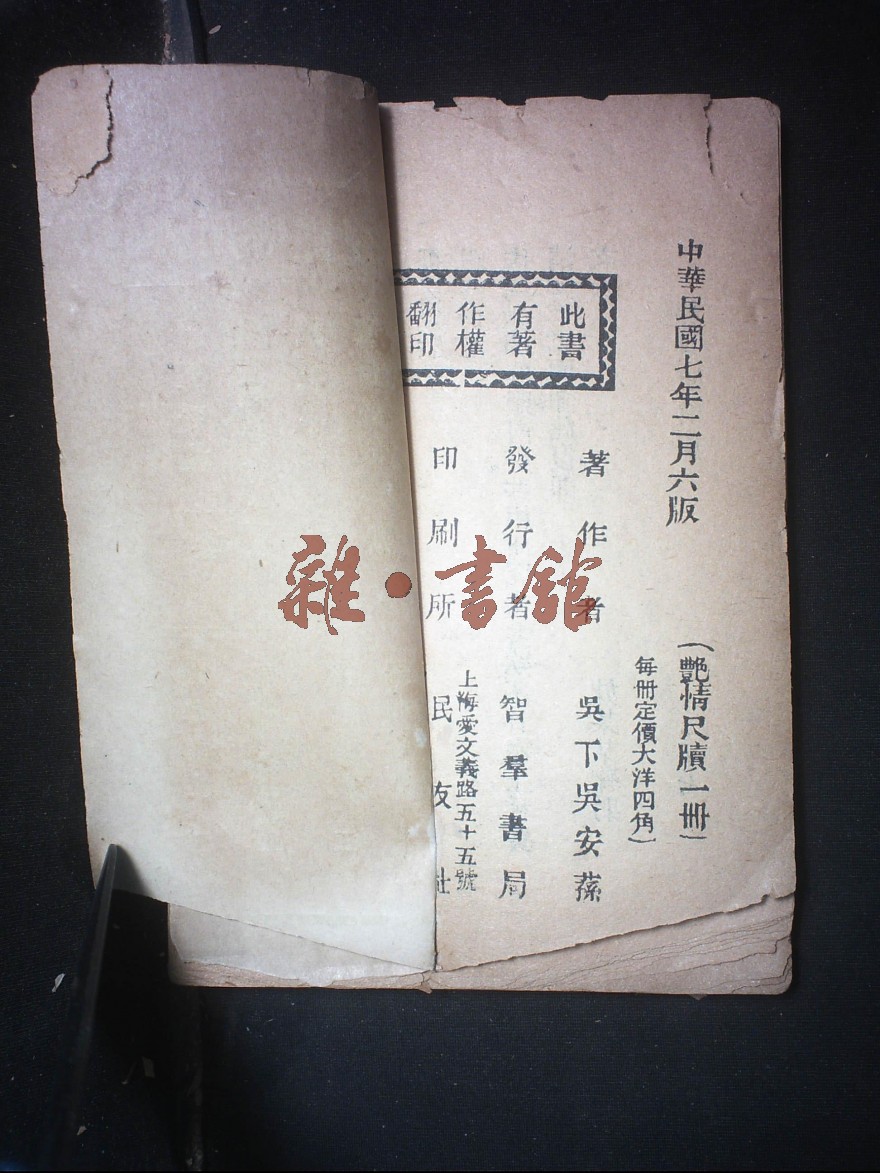 中華民國七年二月六版
（艷情尺牘一冊）
每冊定價大洋四角）
此書
有著
作權
翻印
著作者　吳下吳安蓀
發行者　智羣書局
上海愛文義路五十五號
印刷所　民友社
雜·書館